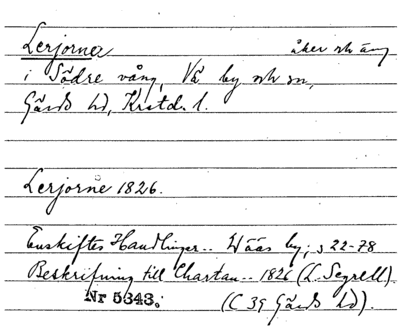 Lerjorner åker och äng
i Södre vång, Vä by och sn,
Gärds hd, Krstd. l.
Lerjorne 1826.
Enskiftes Handlingar.. Wääs by; s 22-78
Beskrifning till Chartan.. 1826 (L. Segrell).
Nr 5343. (C 39 Gärds hd).